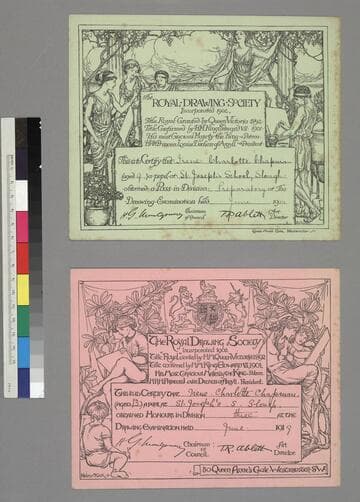 The
ROYAL·DRAWING·SOCIETY
Incorporated 1902.
Title Granted by Queen Victoria 1892
Title Confirmed by H.M. King Edward VII 1901
His most Gracious Majesty the King Patron
H.R.H. Princess Louise Duchess of Argyll President
This is to Certify that Irene Charlotte Chapman
aged 9 a pupil of St. Joseph's School, Slough
obtained a Pass in Division Preparatory at the
Drawing Examination held June
Chairman of Council T.R. Ablett Art Director
Queen Anne's Gate, Westminster
The ROYAL DRAWING SOCIETY
Incorporated 1902
Title Granted by H.M. Queen Victoria 1892
Title confirmed by H.M. King Edward VII. 1901.
His Most Gracious Majesty the King Patron
H.R.H. Princess Louise Duchess of Argyll President
This is to Certify that Irene Charlotte Chapman
aged 13 a pupil of St. Joseph's S. Slough
obtained Honours in Division three at the
Drawing Examination held June 1919
Chairman of Council T.R. Ablett Art Director
50 Queen Anne's Gate Westminster S.W.